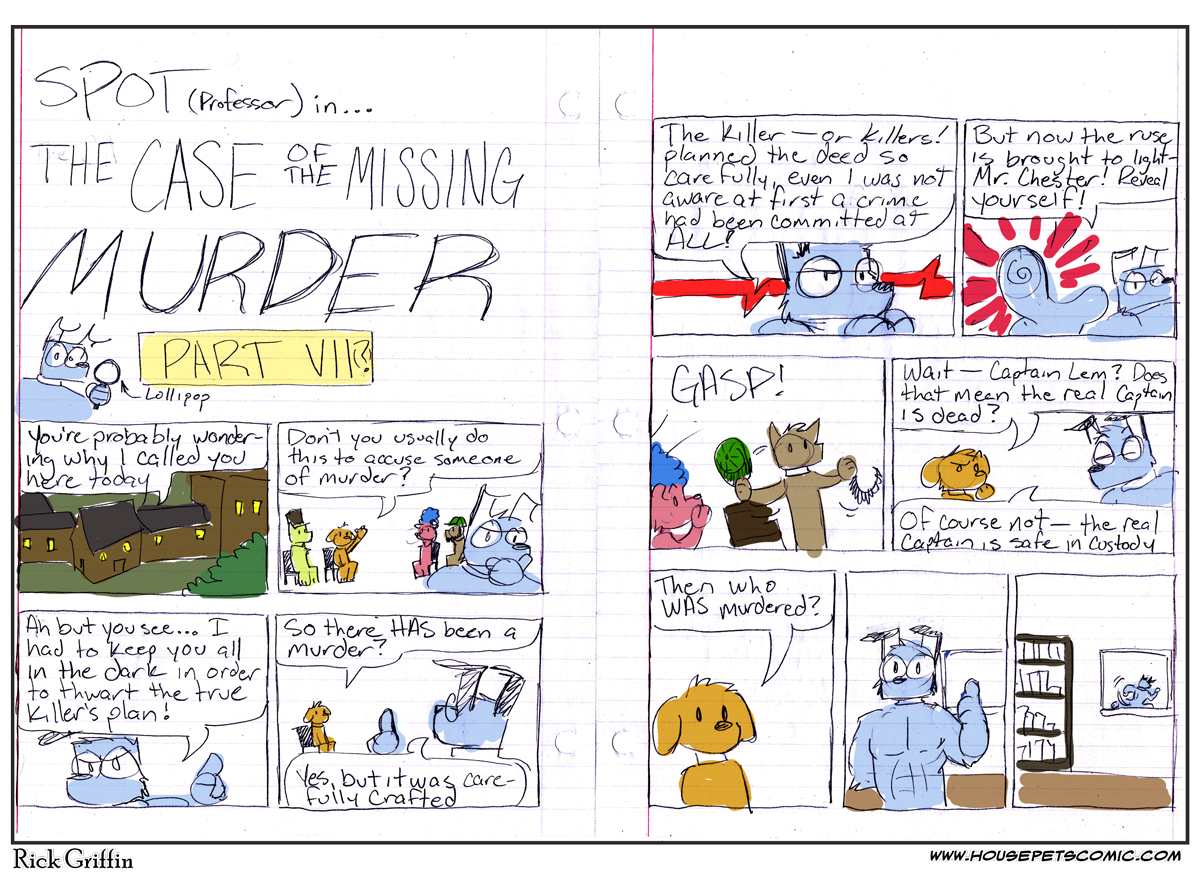 SPOT (Professor) in...
THE CASE OF THE MISSING
MURDER
PART VII?!
Lollipop
You're probably wonder-
ing why I called you
here today
Don't you usually do
this to accuse someone
of murder?
Ah but you see... I
had to keep you all
in the dark in order
to thwart the true
Killer's plan!
So there HAS been a
murder?
Yes, but it was care-
fully crafted
The Killer — or Killers!
planned the deed so
carefully, even I was not
aware at first a crime
had been committed at
ALL!
But now the ruse
is brought to light-
Mr. Chester! Reveal
yourself!
GASP!
Wait — Captain Lem? Does
that mean the real Captain
is dead?
Of course not — the real
Captain is safe in custody
Then who
WAS murdered?
Rick Griffin
WWW.HOUSEPETSCOMIC.COM